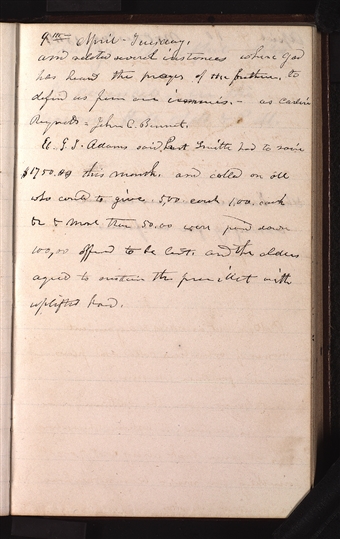 9th April - Tuesday,
and related several instances where God
has heard the prayer of the brethren, to
defend us from our enemies. - as
Reynolds = John C. Bennet.
El. G. J. Adams said, Prest Smith had to raise
$1750.00 this month. and called on all
who could to give. 5,00 each 1,00. each
&c & more than 50.00 were paid down
100,00 offered to be lent. and the elders
agreed to sustain the president with
uplifted hand.